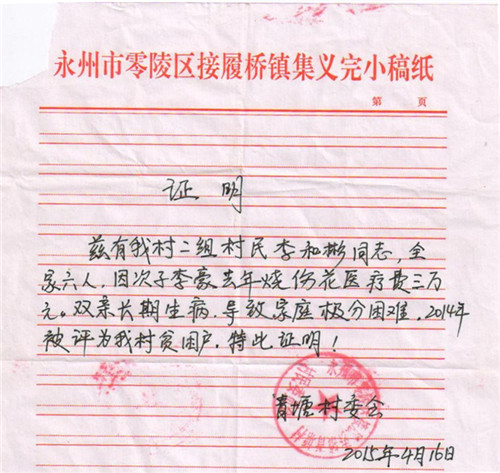 永州市零陵区接履桥镇集义完小稿纸
第 页
证明
兹有我村二组村民李和彬同志，全
家六人，因次子李豪去年烧伤花医疗费三万
元。双亲长期生病，导致家庭极分困难，2014年
被评为我村贫困户，特此证明！
青塘村委会
2015年4月16日